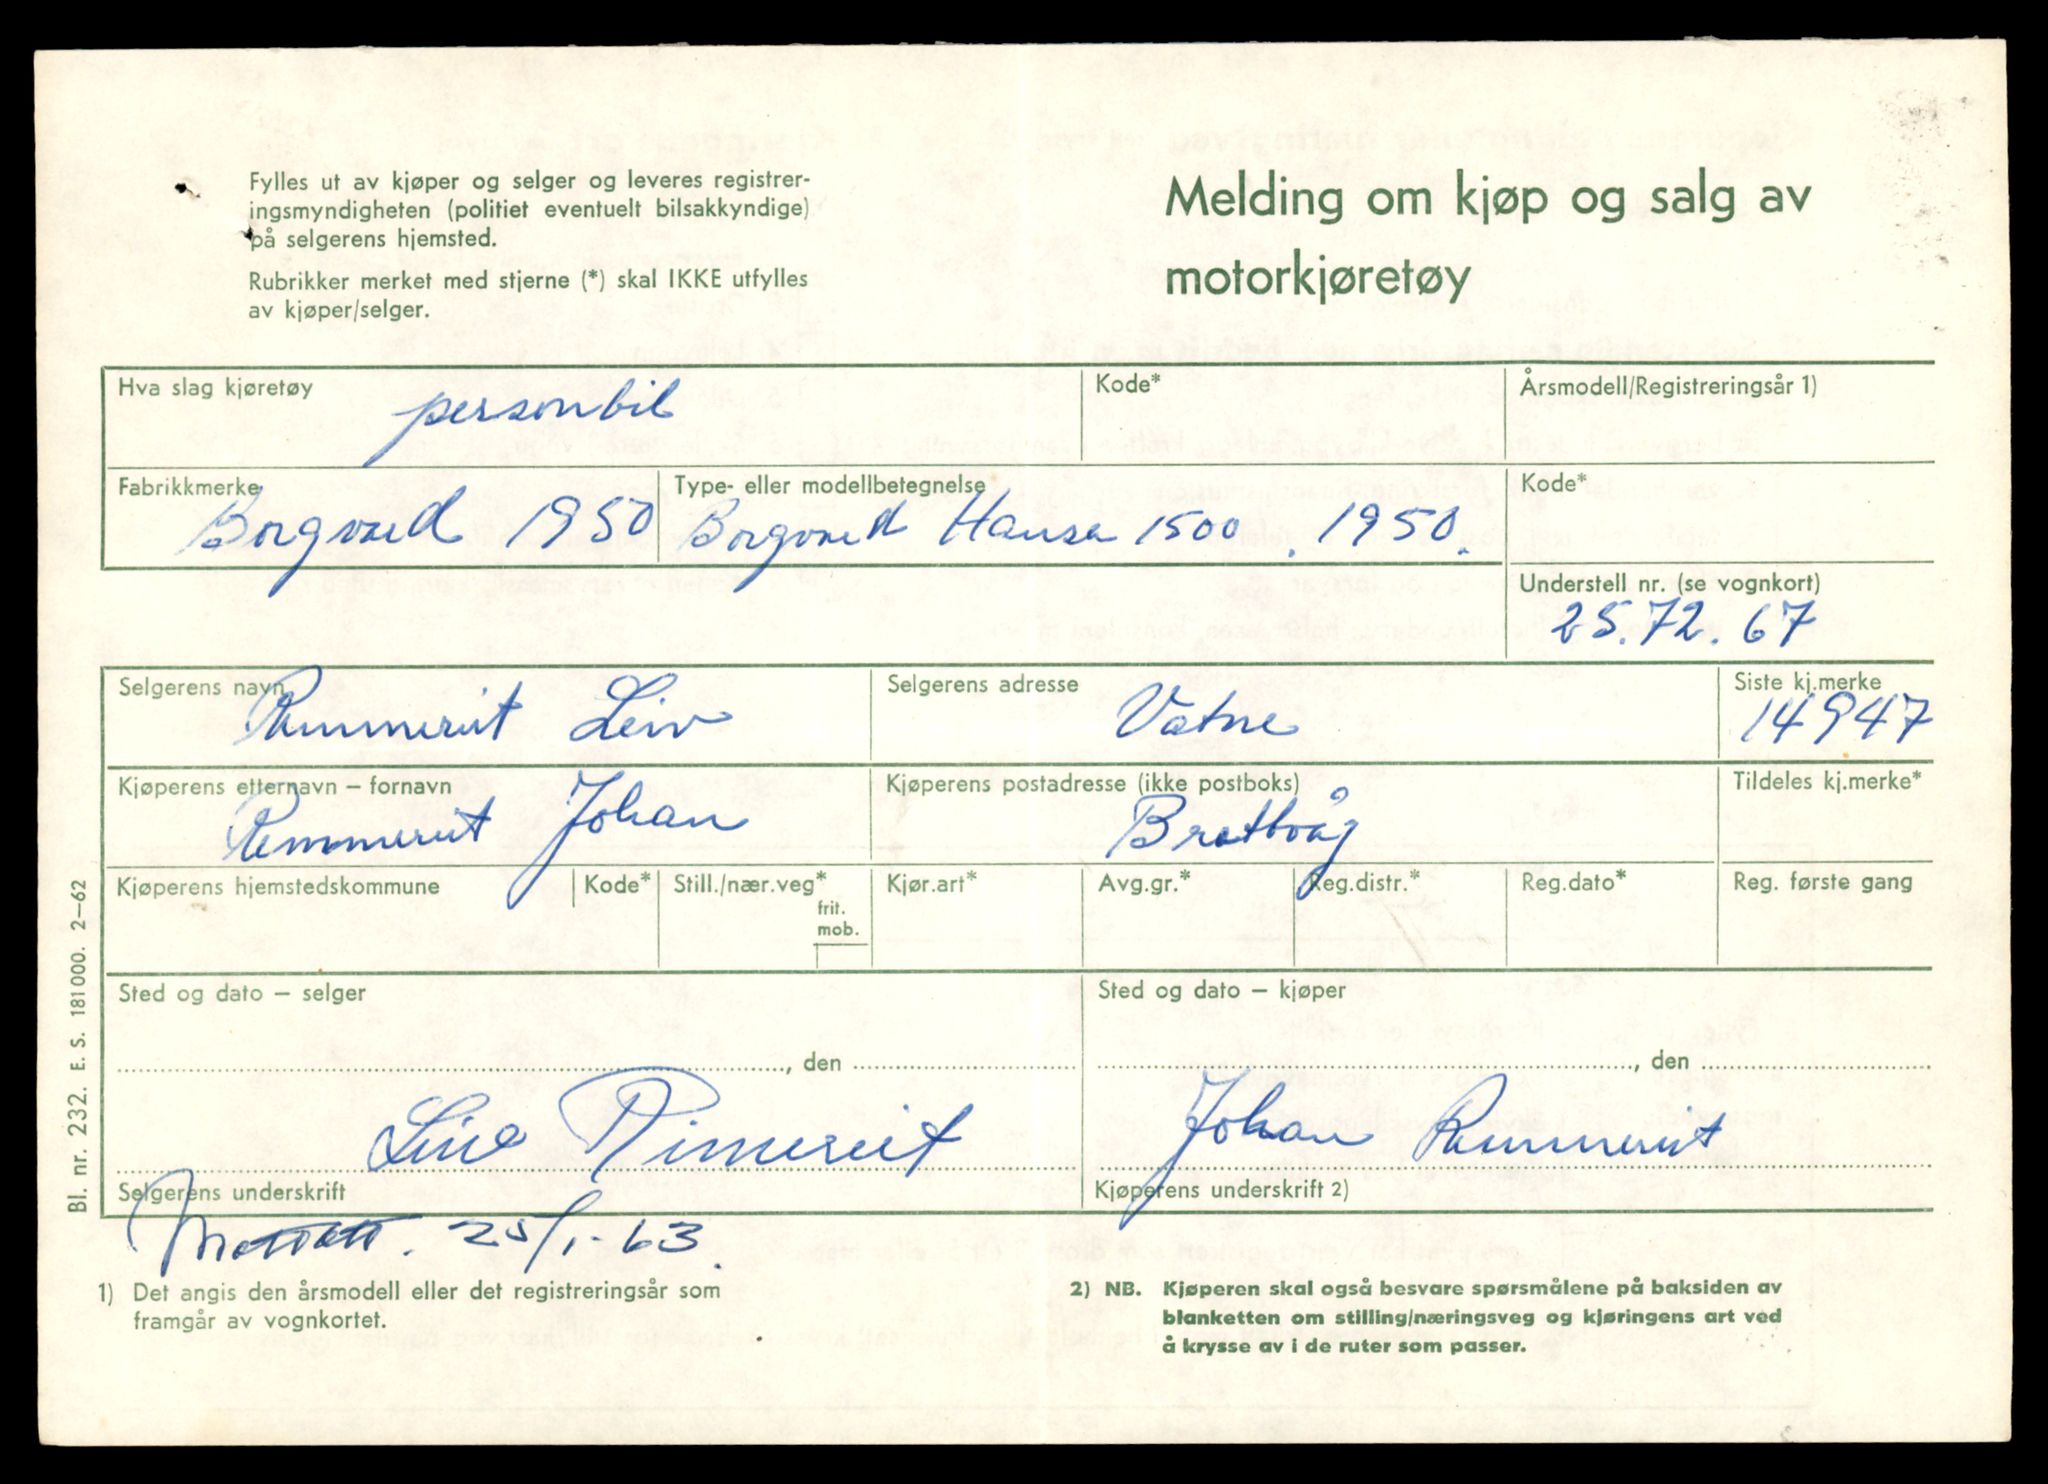 Fylles ut av kjøper og selger og leveres registrer-
ingsmyndigheten (politiet eventuelt bilsakkyndige)
på selgerens hjemsted.
Rubrikker merket med stjerne (*) skal IKKE utfylles
av kjøper/selger.
Melding om kjøp og salg av
motorkjøretøy
Hva slag kjøretøy
personbil
Kode*
Årsmodell/Registreringsår 1)
Fabrikkmerke
Borgvard 1950
Type- eller modellbetegnelse
Borgvard Hansa 1500. 1950.
Kode*
Understell nr. (se vognkort)
25.72.67
Selgerens navn
Remmereit Leiv
Selgerens adresse
Vatne
Siste kj.merke
14947
Kjøperens etternavn – fornavn
Remmereit Johan
Kjøperens postadresse (ikke postboks)
Brattvåg
Tildeles kj.merke*
Kjøperens hjemstedskommune
Kode*
Still./nær.veg*
frit.
mob.
Kjør.art*
Avg.gr.*
Reg.distr.*
Reg.dato*
Reg. første gang
Sted og dato – selger
, den
Sted og dato – kjøper
, den
Leiv Rimereit
Selgerens underskrift
Johan Remmereit
Kjøperens underskrift 2)
Mottatt. 25/1-63.
1) Det angis den årsmodell eller det registreringsår som
framgår av vognkortet.
2) NB. Kjøperen skal også besvare spørsmålene på baksiden av
blanketten om stilling/næringsveg og kjøringens art ved
å krysse av i de ruter som passer.
Bl. nr. 232. E. S. 181000. 2–62